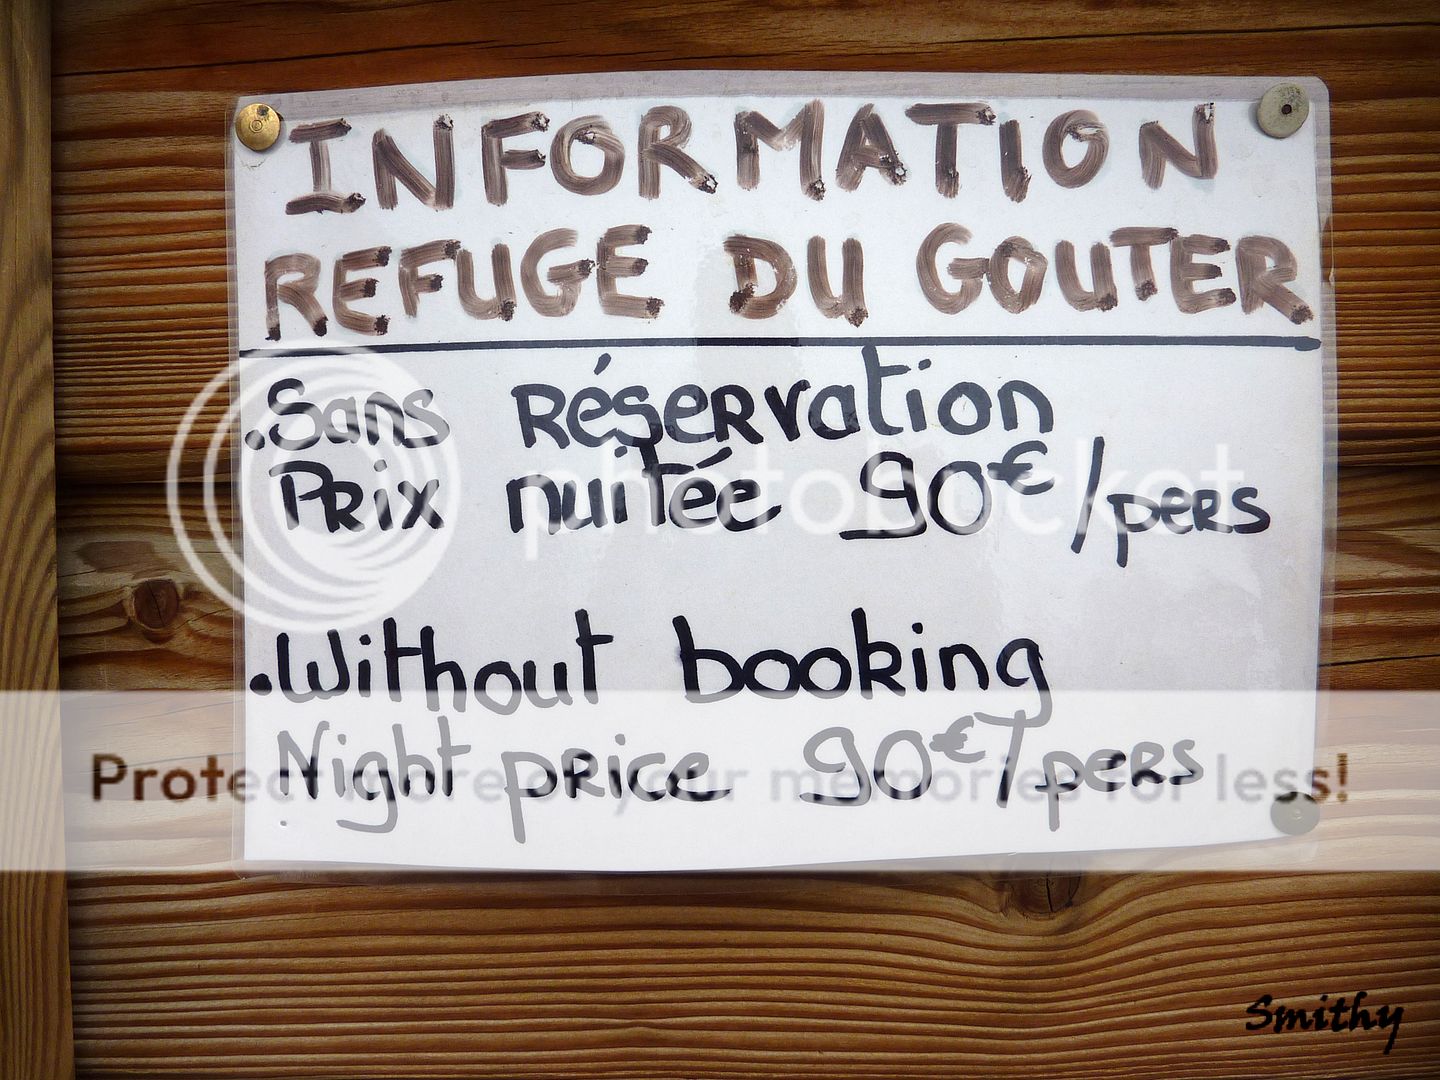 INFORMATION
REFUGE DU GOUTER
.Sans Réservation
Prix nuitée 90€/pers
.Without booking
Night price 90€/pers
photobucket
Protect more of your memories for less!
Smithy